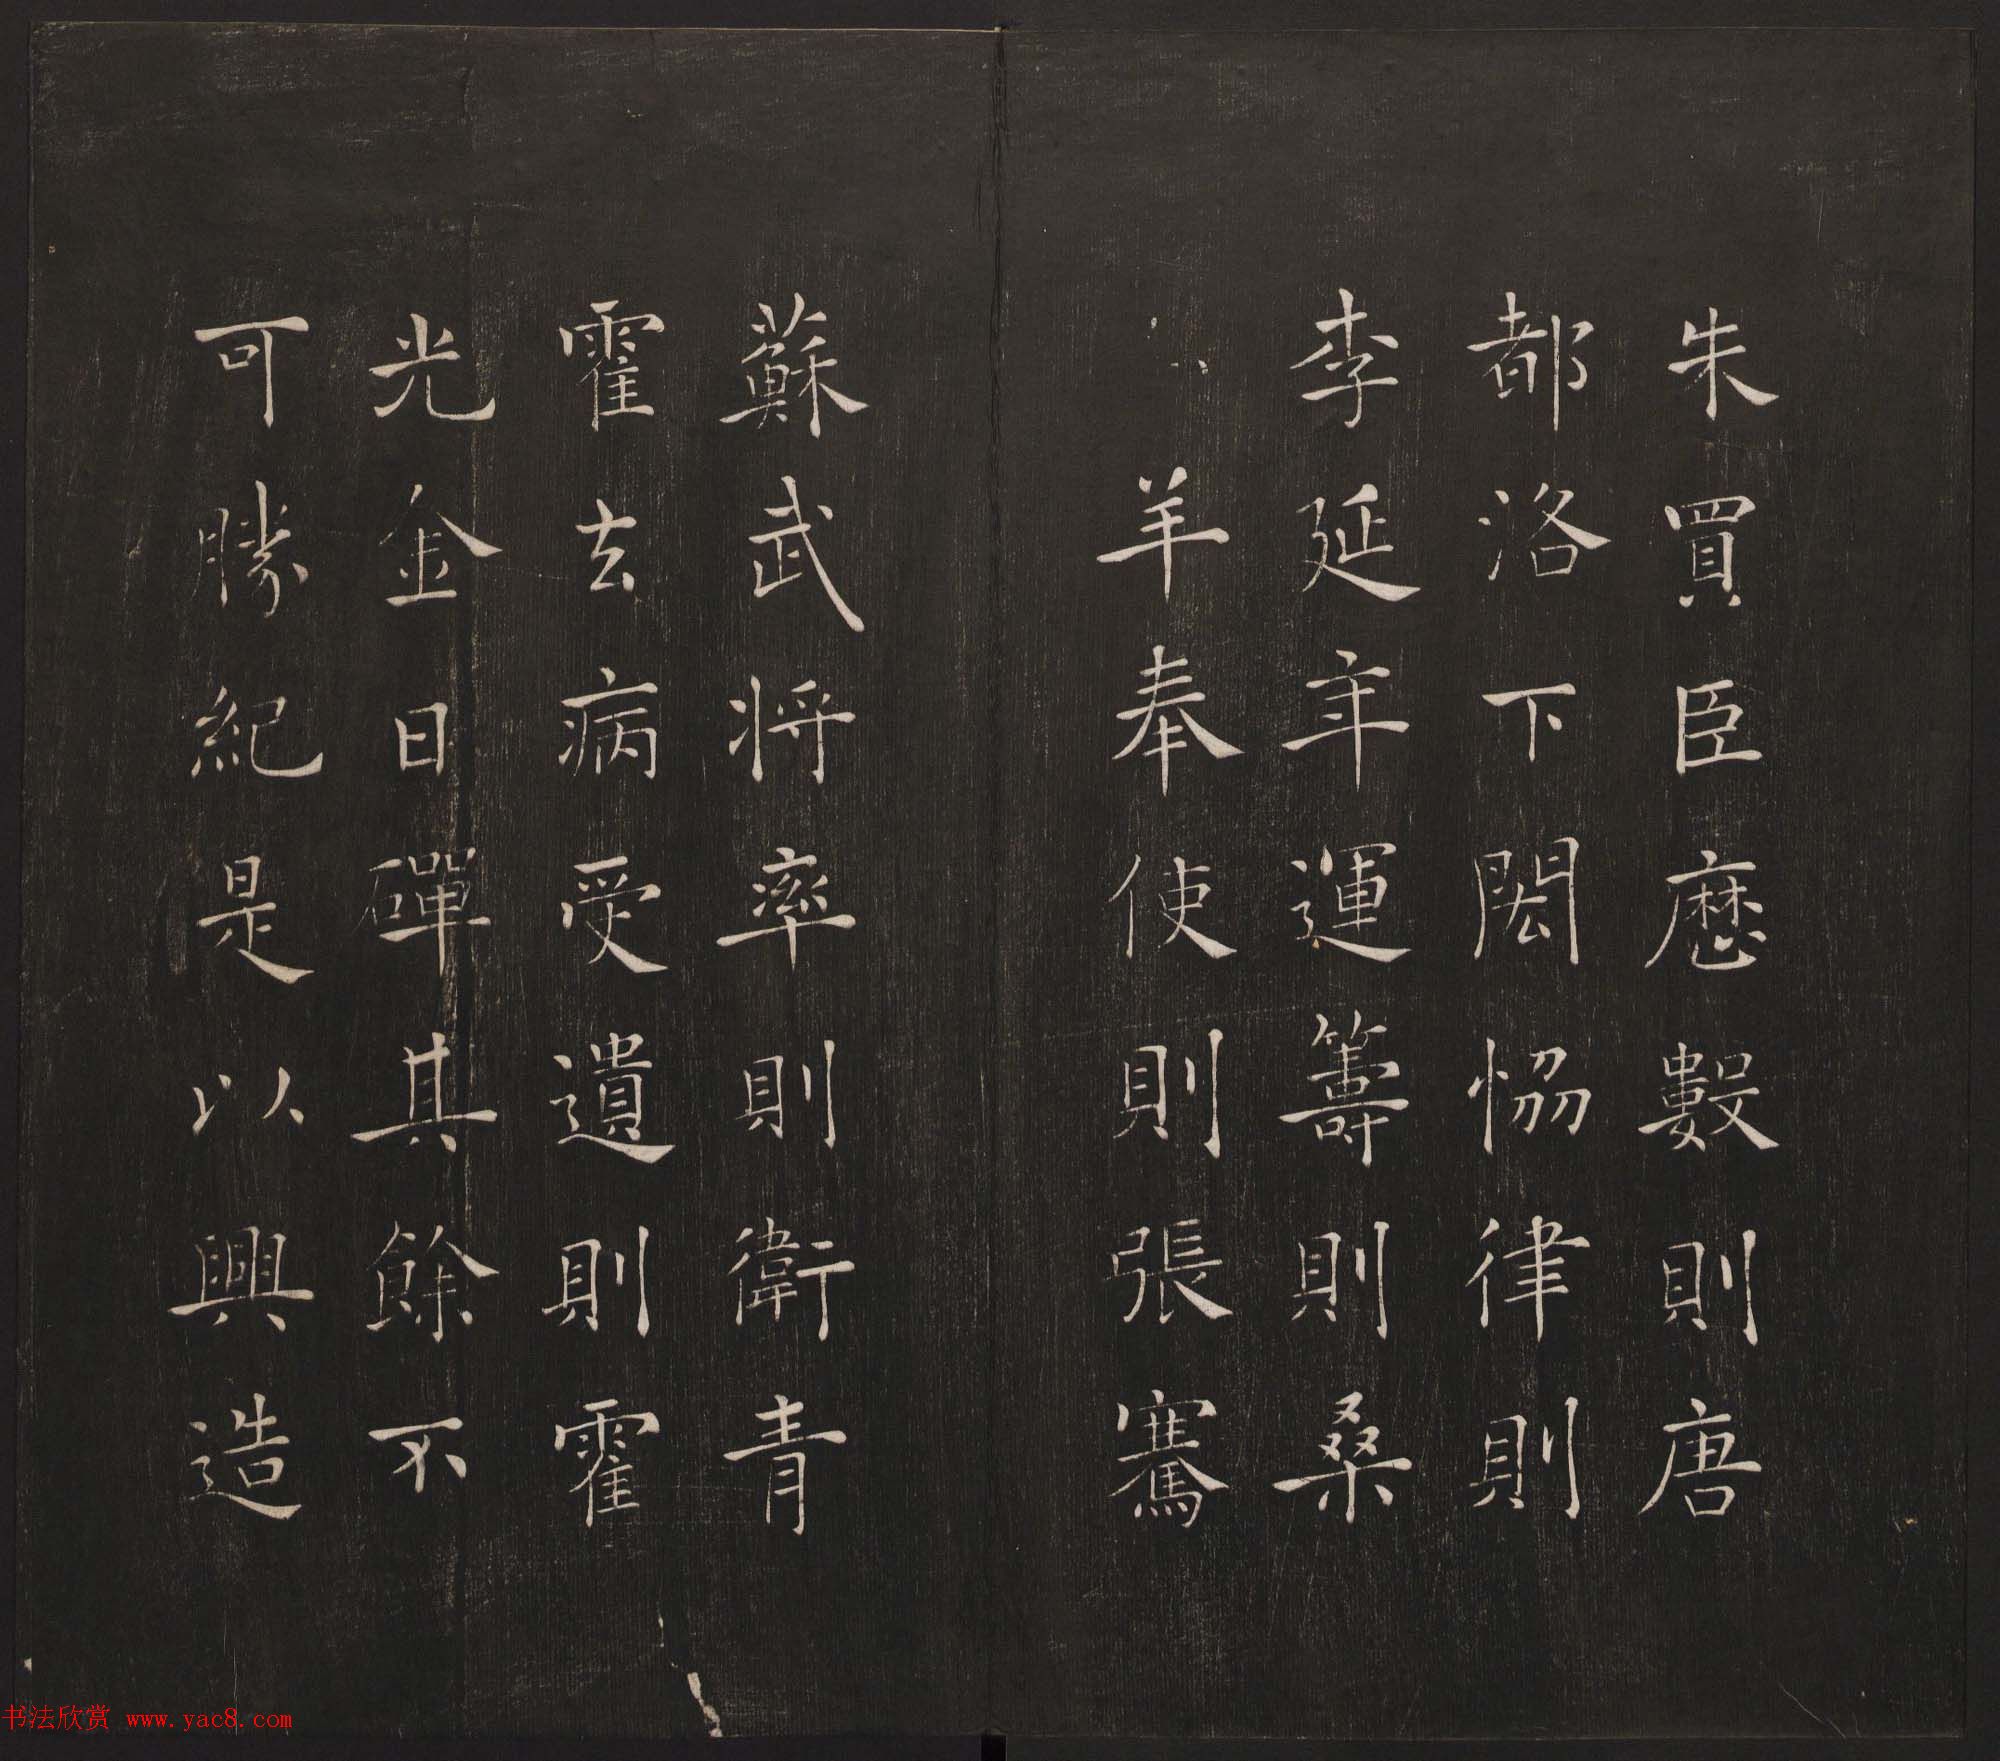 朱買臣厯數則唐
都洛下閎恊律則
李延年運籌則桑
羊奉使則張騫
蘇武将率則衛青
霍去病受遺則霍
光金日磾其餘不
可勝紀是以興造
书法欣赏 www.yac8.com